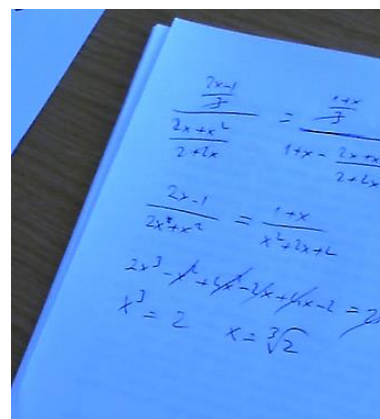 \frac{\frac{2x-1}{3}}{\frac{2x+x^2}{2+2x}} = \frac{\frac{1+x}{3}}{1+x-\frac{2x+x}{2+2x}}
\frac{2x-1}{2x+x^2} = \frac{1+x}{x^2+2x+2}
2x^3-x^2+4x^2-2x+4x-2=2
x^3=2 x=\sqrt[3]{2}